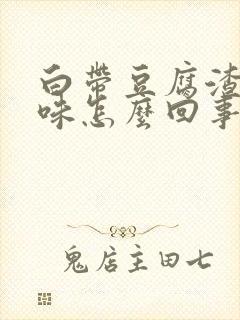 白带豆腐渣
味怎麽回事
鬼店主田七